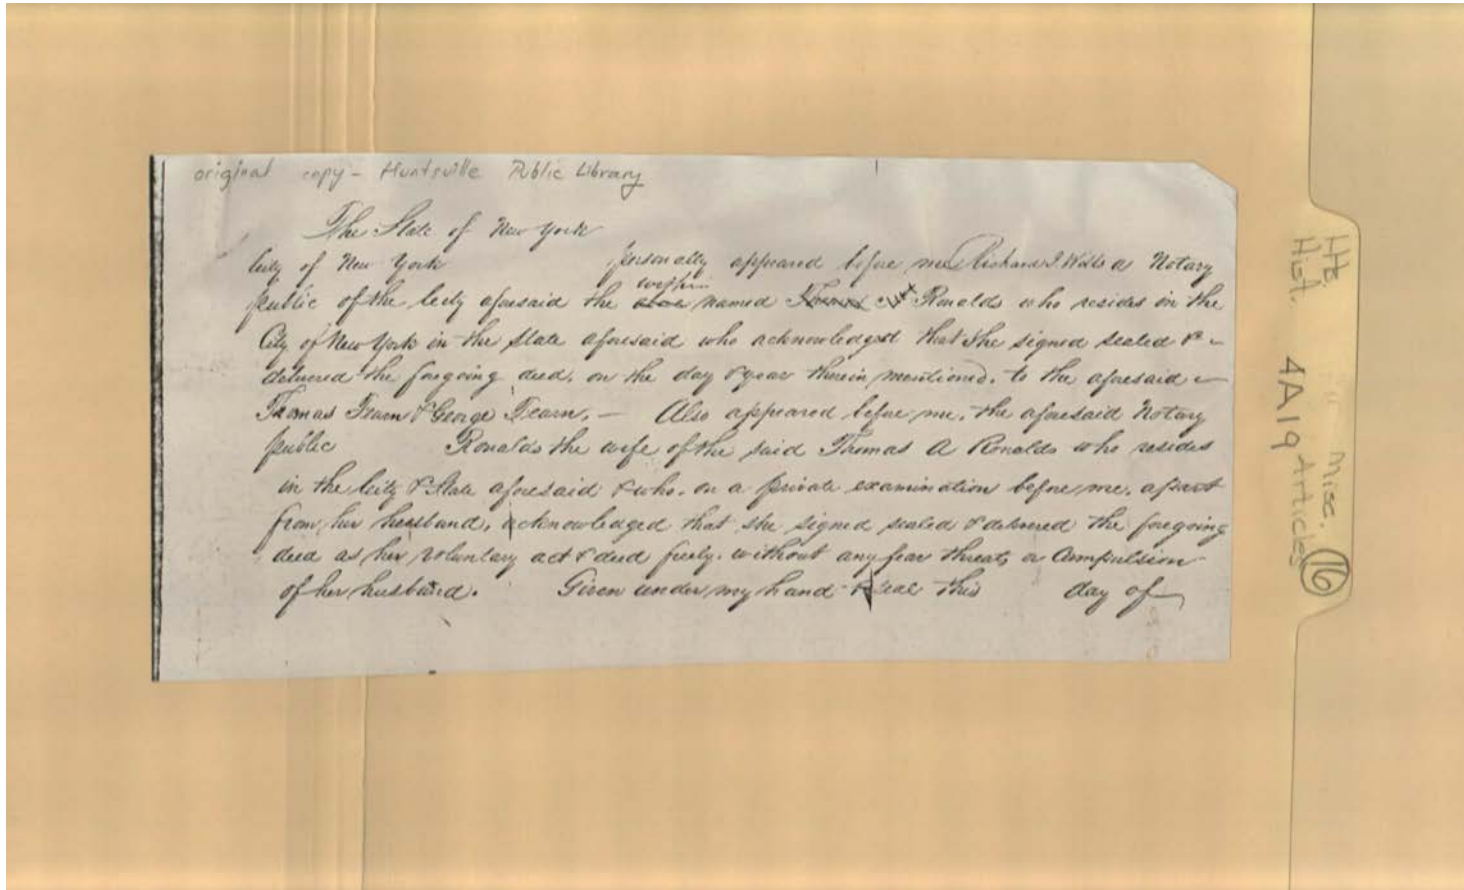 original copy - Huntsville Public Library
The State of New York
City of New York personally appeared before me Richard J. Wells a Notary
within
public of the City aforesaid the above named Thomas Ronalds who resides in the
City of New York in the State aforesaid who acknowledged that she signed sealed &
delivered the foregoing deed, on the day & year therein mentioned. to the aforesaid
Thomas Fearn & George Fearn. — Also appeared before me, the aforesaid Notary
public Ronalds the wife of the said Thomas A Ronalds who resides
in the City & State aforesaid & who. on a private examination before me, apart
from her husband, acknowledged that she signed sealed & delivered the foregoing
deed as her voluntary act & deed freely. without any fear threats or Compulsion
of her husband. Given under my hand & seal this day of
Hist. Misc. Articles
4A19
16